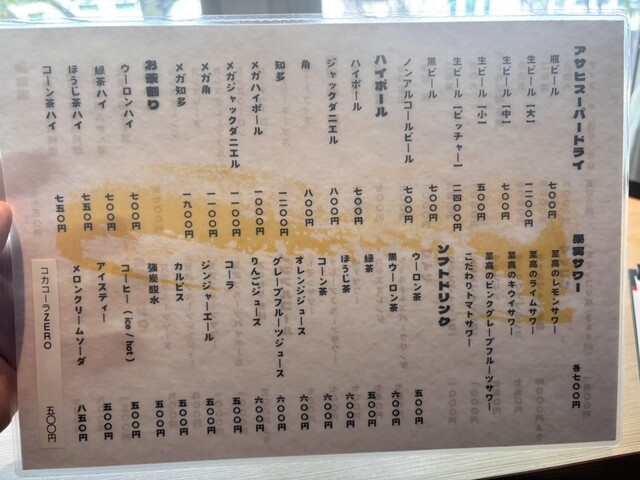 アサヒスーパードライ
瓶ビール 七〇〇円
生ビール【大】 一二〇〇円
生ビール【中】 七〇〇円
生ビール【小】 五〇〇円
生ビール【ピッチャー】 二四〇〇円
黒ビール 七〇〇円
ノンアルコールビール 七〇〇円
ハイボール
ハイボール 七〇〇円
ジャックダニエル 八〇〇円
角 八〇〇円
知多 一二〇〇円
メガハイボール 一〇〇〇円
メガジャックダニエル 一一〇〇円
メガ角 一一〇〇円
メガ知多 一九〇〇円
お茶割り
ウーロンハイ 七〇〇円
緑茶ハイ 七五〇円
ほうじ茶ハイ 七五〇円
コーン茶ハイ 七五〇円
果実サワー 各七〇〇円
至高のレモンサワー
至高のライムサワー
至高のキウイサワー
至高のピンクグレープフルーツサワー
こだわりトマトサワー
ソフトドリンク
ウーロン茶 五〇〇円
黒ウーロン茶 六〇〇円
緑茶 五〇〇円
ほうじ茶 六〇〇円
コーン茶 六〇〇円
オレンジジュース 六〇〇円
グレープフルーツジュース 六〇〇円
りんごジュース 六〇〇円
コーラ 五〇〇円
ジンジャーエール 五〇〇円
カルピス 五〇〇円
強炭酸水 五〇〇円
コーヒー（ice / hot） 五〇〇円
アイスティー 五〇〇円
メロンクリームソーダ 八五〇円
コカコーラZERO 五〇〇円